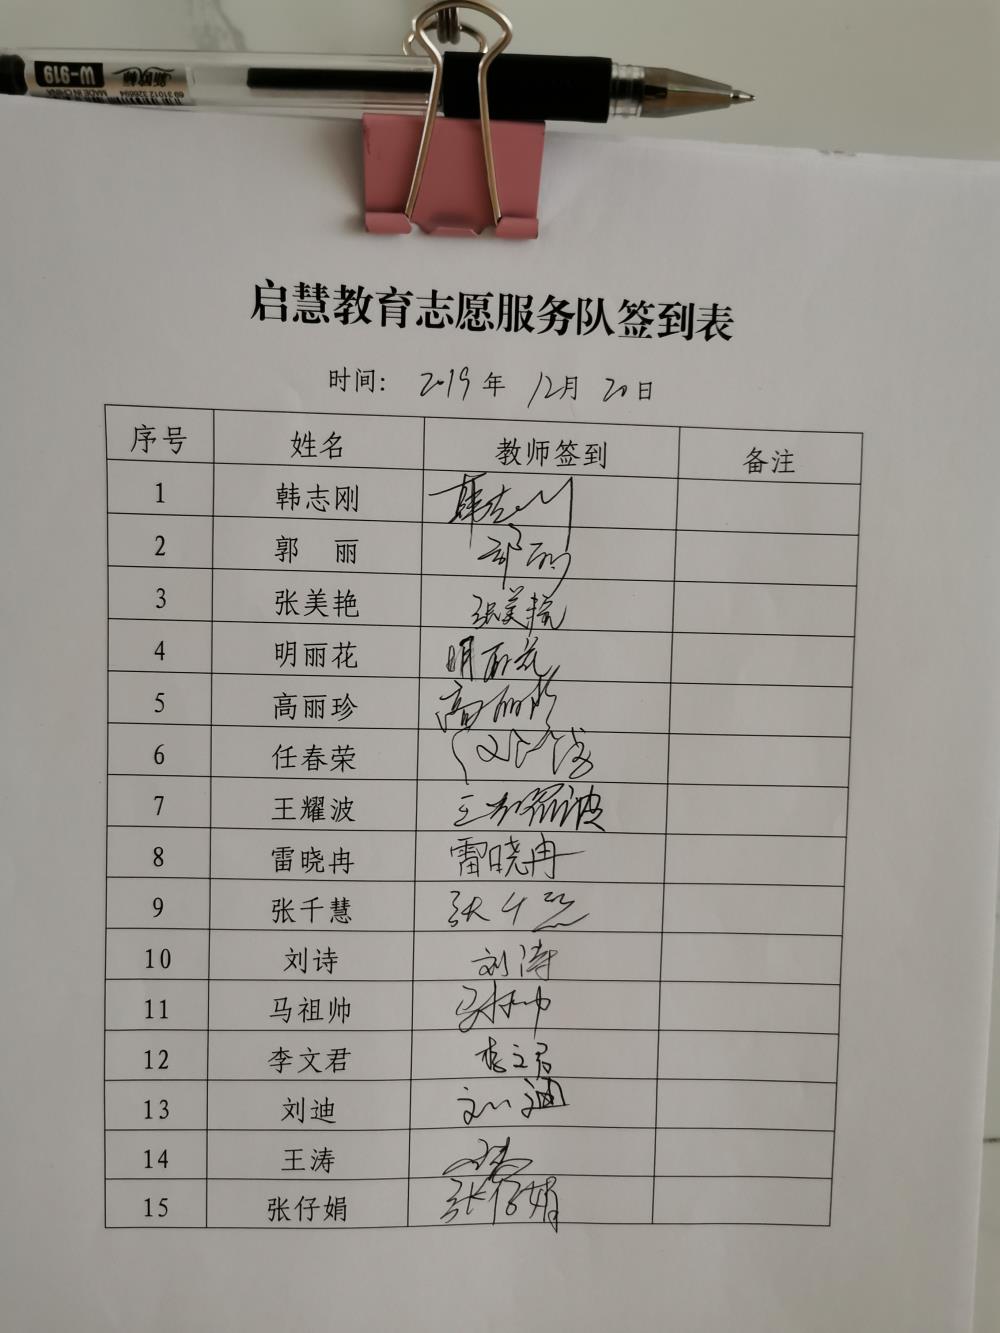 W-919
MADE IN CHINA
启慧教育志愿服务队签到表
时间: 2019年 12月 20日
序号 姓名 教师签到 备注
1 韩志刚 韩志刚
2 郭 丽 郭丽
3 张美艳 张美艳
4 明丽花 明丽花
5 高丽珍 高丽珍
6 任春荣
7 王耀波 王耀波
8 雷晓冉 雷晓冉
9 张千慧 张千慧
10 刘诗 刘诗
11 马祖帅 马祖帅
12 李文君 李文君
13 刘迪 刘迪
14 王涛 王涛
15 张仔娟 张仔娟